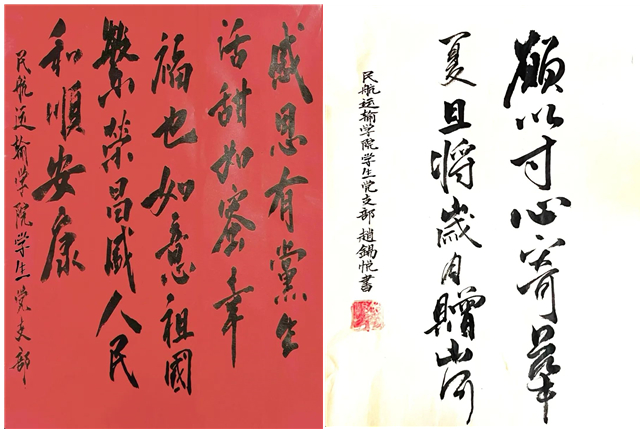 感恩有黨生
活甜如蜜幸
福也如意祖國
繁榮昌盛人民
和順安康
民航运輸学院学生党支部
願以寸心寄華
夏且将歲月贈山河
民航运輸学院学生党支部 趙錫悦書